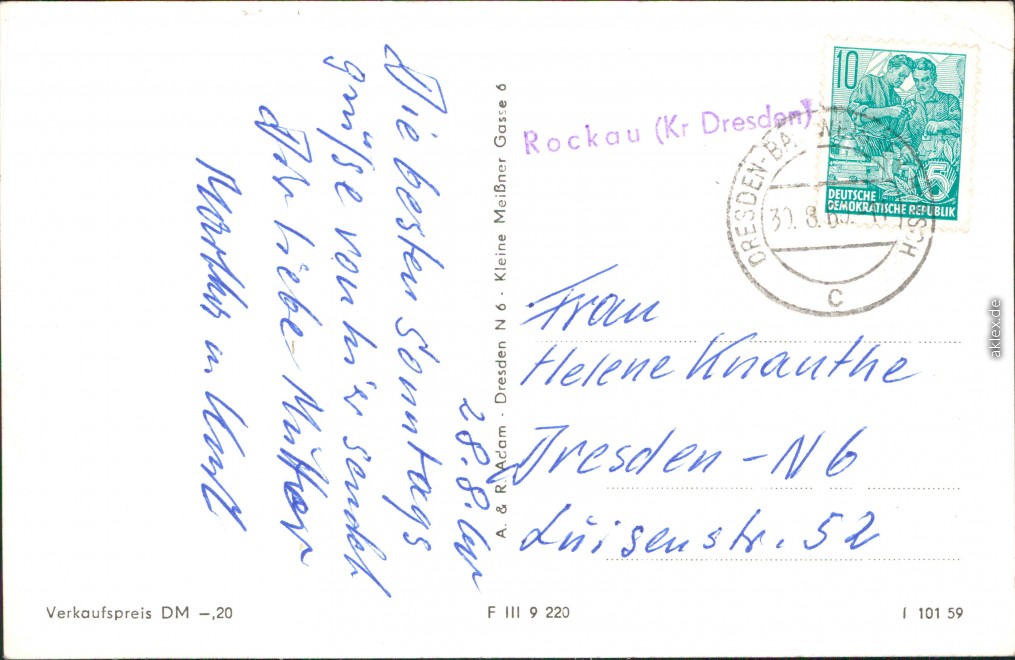 28.8.
Die besten Sonntags
grüße von hier sendet
Dir liebe Mutter
Martha u. Kurt
A. & R. Adam - Dresden N 6 - Kleine Meißner Gasse 6
Rockau (Kr Dresden)
10
5
DEUTSCHE
DEMOKRATISCHE REPUBLIK
DRESDEN-BAD
HIRSCH
C
Frau
Helene Knauthe
Dresden - N 6
Luisenstr. 52
Verkaufspreis DM –,20
F III 9 220
I 101 59
aklex.de